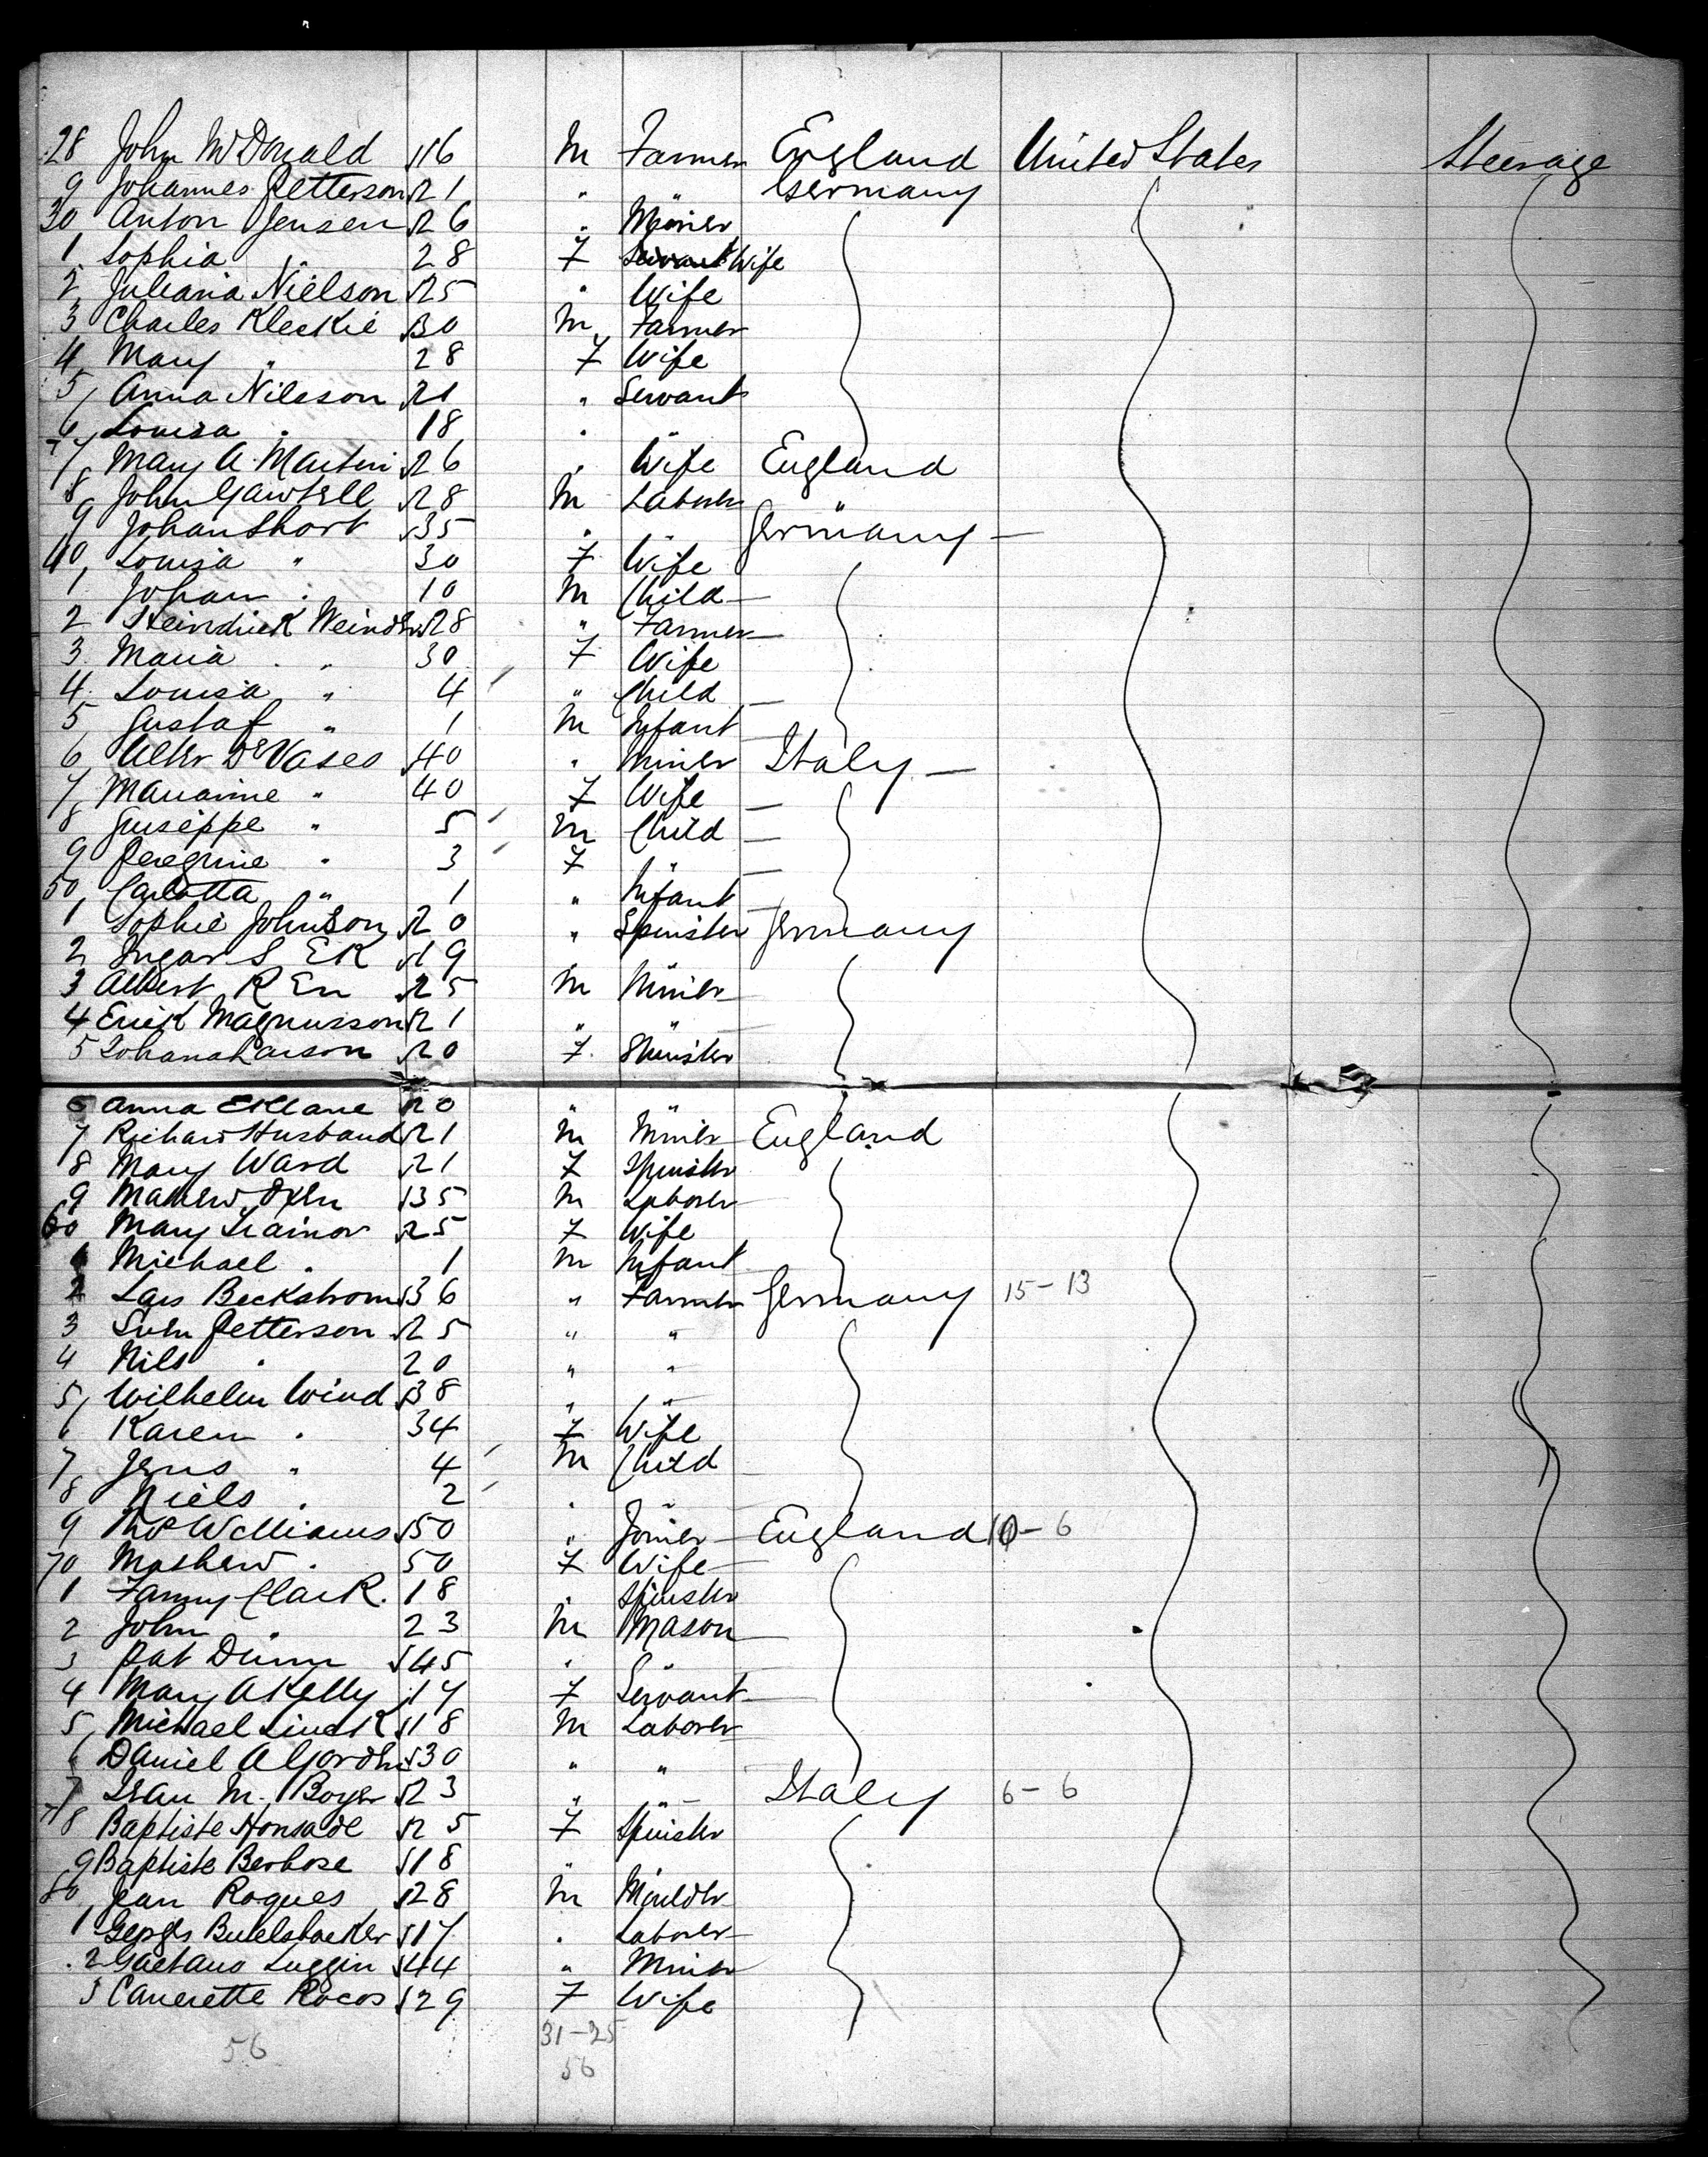 28 John McDonald 16 M Farmer England United States Steerage
9 Johannes Petterson 21 " " Germany
30 Anton Jensen 26 " Miner
1 Sophia " 28 F Servant Wife
2 Juliana Nielson 25 " Wife
3 Charles Kleckie 30 M Farmer
4 Mary " 28 F Wife
5 Anna Nilsson 21 " Servant
6 Louisa " 18 " "
7 Mary A. Martin 26 " Wife England
8 John Gawtrell 28 M Laborer "
9 Johan Short 35 " " Germany
40 Louisa " 30 F Wife
1 Johan " 10 M Child
2 Heindrick 28 " Farmer
3 Maria " 30 F Wife
4 Louisa " 4 " Child
5 Gustaf " 1 M Infant
6 De Vases 40 " Miner Italy
7 Marianne " 40 F Wife
8 Guiseppe " 5 M Child
9 Peregrine " 3 F "
50 Carlotta " 1 " Infant
1 Sophie Johnson 20 " Spinster Germany
2 Ingar S Ek 19 " "
3 Albert R En 25 M Miner
4 Erick Magnusson 21 " "
5 Johana Larson 20 F Spinster
6 Anna Eklane 20 " "
7 Richard Husband 21 M Miner England
8 Mary Ward 21 F Spinster
9 Mathew Oxen 35 M Laborer
60 Mary Trainor 25 F Wife
1 Michael " 1 M Infant
2 Lars Beckstrom 36 " Farmer Germany 15-13
3 Sven Petterson 25 " "
4 Nils " 20 " "
5 Wilhelm Wind 38 " "
6 Karen " 34 F Wife
7 Jens " 4 M Child
8 Niels " 2 " "
9 Thos Williams 50 " Joiner England 10-6
70 Mathew " 50 F Wife
1 Fanny Clark 18 " Spinster
2 John " 23 M Mason
3 Pat Dunn 45 " "
4 Mary A Kelly 17 F Servant
5 Michael 18 M Laborer
6 Daniel A 30 " "
7 M. Boyer 23 " " Italy 6-6
78 Baptiste 25 F Spinster
9 Baptiste Berhose 18 " "
80 Jean Roques 28 M Moulder
1 Georges Buelsbacker 17 " Laborer
2 Gaetano Luggin 44 " Miner
3 Canerette Rocos 29 F Wife
56 31-25
56